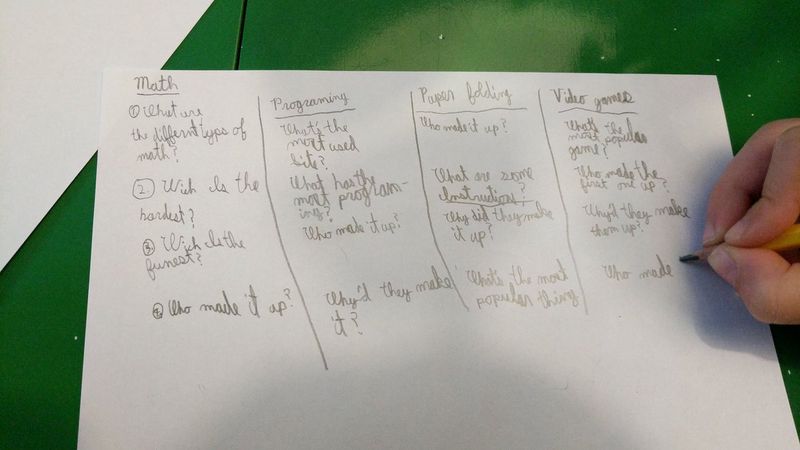 Math
① What are
the differnt typs of
math?
② Wich Is the
hardest?
③ Wich Is the
funest?
④ Who made it up?
Programing
What's the
most used
bite?
What has the
most program-
ing?
Who make it up?
Why'd they make
it?
Paper folding
Who made it up?
What are some
Instructions?
Why did they make
it up?
What's the most
popular thing
Video games
What's the
most popular
game?
Who made the
first one up?
Why'd they make
them up?
Who made